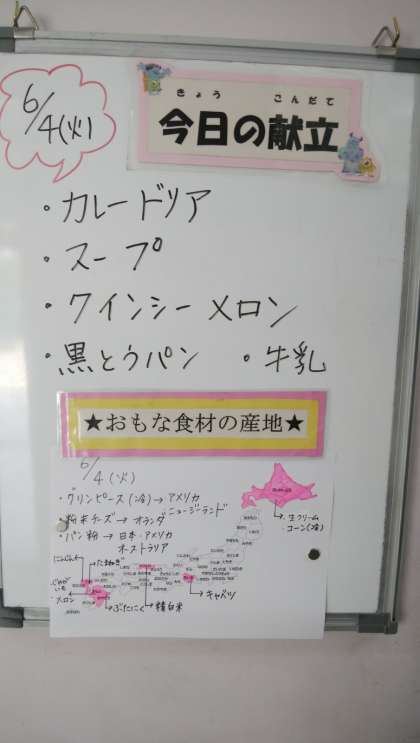 6/4(火)
きょう こんだて
今日の献立
・カレードリア
・スープ
・クインシーメロン
・黒とうパン ・牛乳
★おもな食材の産地★
6/4(火)
・グリンピース(冷)→アメリカ
ニュージーランド
・粉末チーズ→オランダ
・パン粉→日本・アメリカ
オーストラリア
・生クリーム
コーン(冷)
にんじん
たまねぎ
じゃがいも
・メロン
ぶたにく
精白米
キャベツ